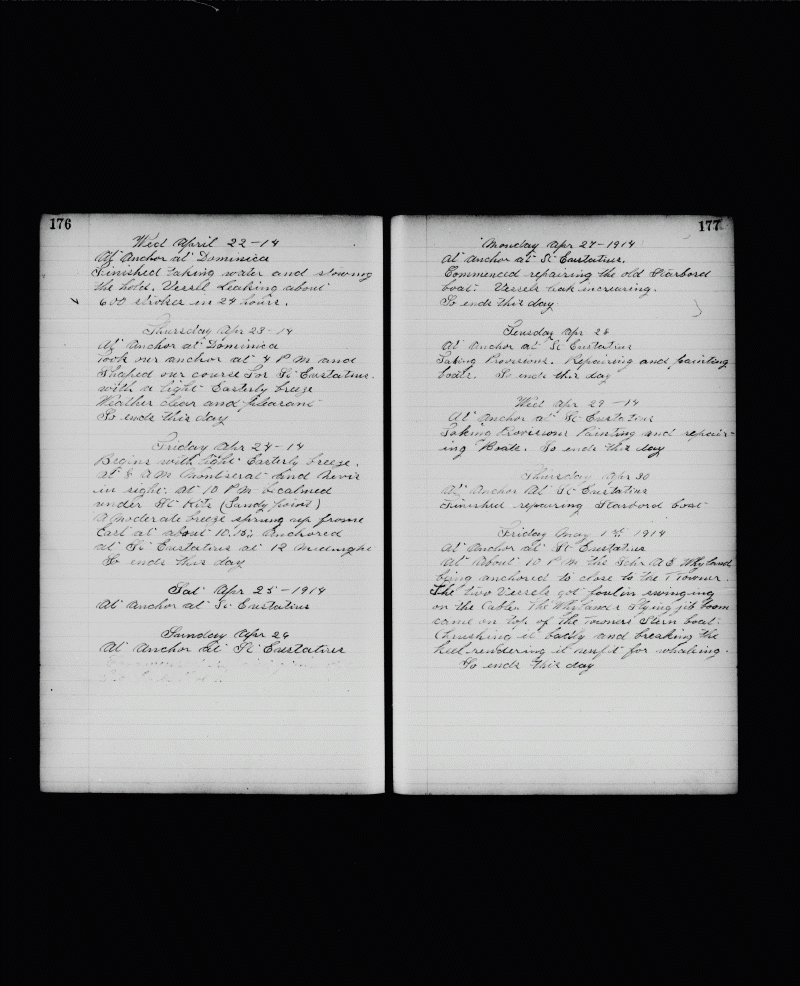 176
Wed April 22-14
At Anchor at Dominica
Finished taking water and stowing
the hold. Vessle Leaking about
600 strokes in 24 hours.
Thursday Apr 23-14
At Anchor at Dominica
Took our anchor at 4 P M and
Shaped our course for St Eustatius.
with a light Easterly breeze
Weather clear and pleasant
So ends this day
Friday Apr 24-14
Begins with light Easterly breeze.
at 8 A M Montserat and Nevis
in sight. at 10 P M becalmed
under St Kits (Sandy point)
A moderate breeze sprung up frome
East at about 10.15. Anchored
at St Eustatius at 12 Midnight
So ends this day
Sat Apr 25-1914
At Anchor at St Eustatius
Sunday Apr 26
At Anchor at St Eustatius
177
Monday Apr 27-1914
At Anchor at St Eustatius.
Commenced repairing the old Starbord
boat. Vessels leak increasing.
So ends this day
Teusday Apr 28
At Anchor at St Eustatius
Taking Provisions. Repairing and painting
boats. So ends this day
Wed Apr 29-14
At Anchor at St Eustatius
Taking Provisions Painting and repair-
ing Boats. So ends this day
Thursday Apr 30
At Anchor At St Eustatius
Finished repairing Starbord boat
Friday May 1st 1914
At Anchor at St Eustatius
At About 10 P M the Schr A E Whyland
being anchored to close to the T Towner.
The two Vessels got foul in swinging
on the Cables The Whylands Flying jib boom
came on top of the Towners Stern boat.
Chrushing it badly and breaking the
keel rendering it unfit for whaling.
So ends this day